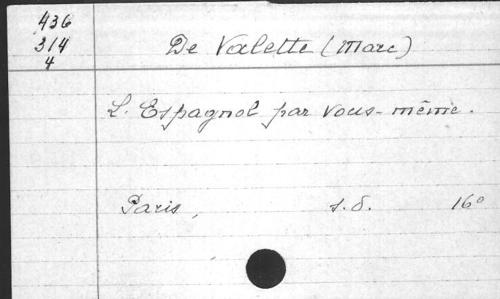 436
314
4
De Valette (Marc)
L'Espagnol par vous-même.
Paris, s.d. 16°